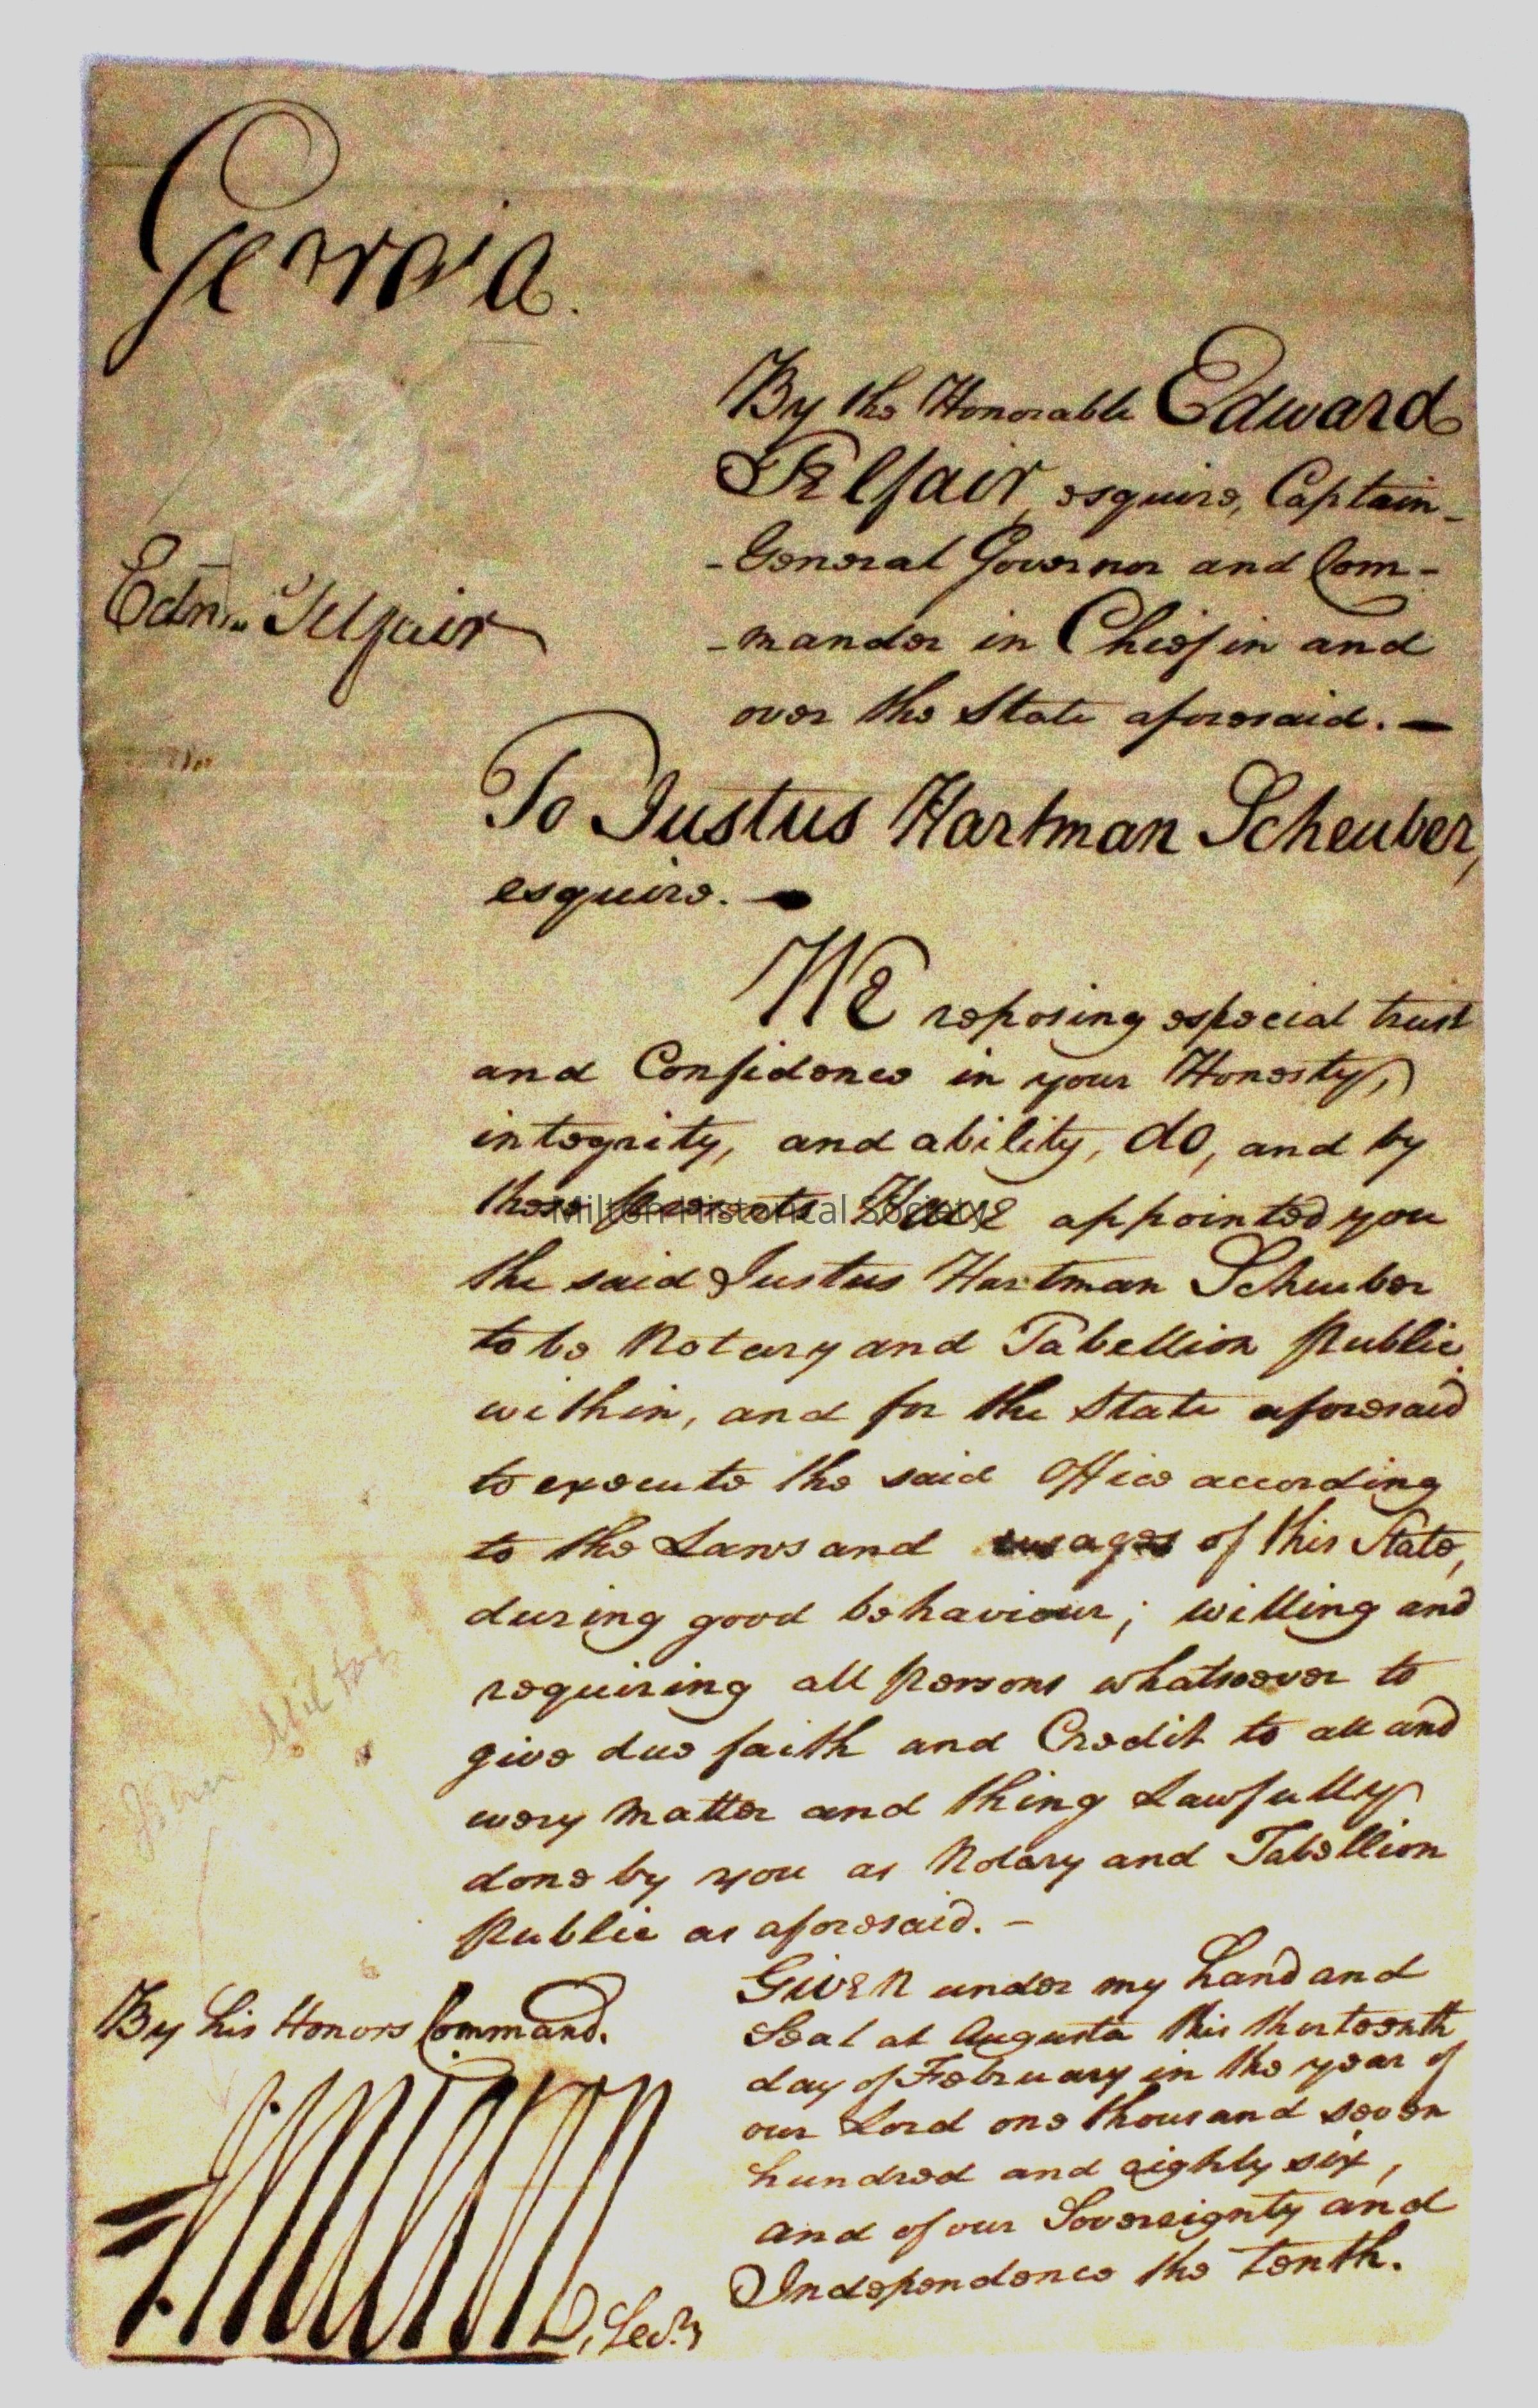 Georgia.
By the Honorable Edward
Telfair, esquire, Captain-
-General Governor and Com-
-mander in Chief in and
over the State aforesaid. —
Edw. Telfair
To Justus Hartman Scheuber,
esquire. —
WE reposing especial trust
and Confidence in your Honesty,
integrity, and ability, do, and by
these presents Have appointed you
Milton Historical Society
the said Justus Hartman Scheuber
to be Notary and Tabellion Public
within, and for the State aforesaid
to execute the said Office according
to the Laws and usages of this State,
during good behaviour; willing and
requiring all persons whatsoever to
give due faith and Credit to all and
every matter and thing Lawfully
done by you as Notary and Tabellion
Public as aforesaid. —
John Milton
Given under my hand and
Seal at Augusta this thirteenth
day of February in the year of
our Lord one thousand seven
hundred and eighty six,
and of our Sovereignty and
Independence the tenth.
By his Honors Command.
J. Milton